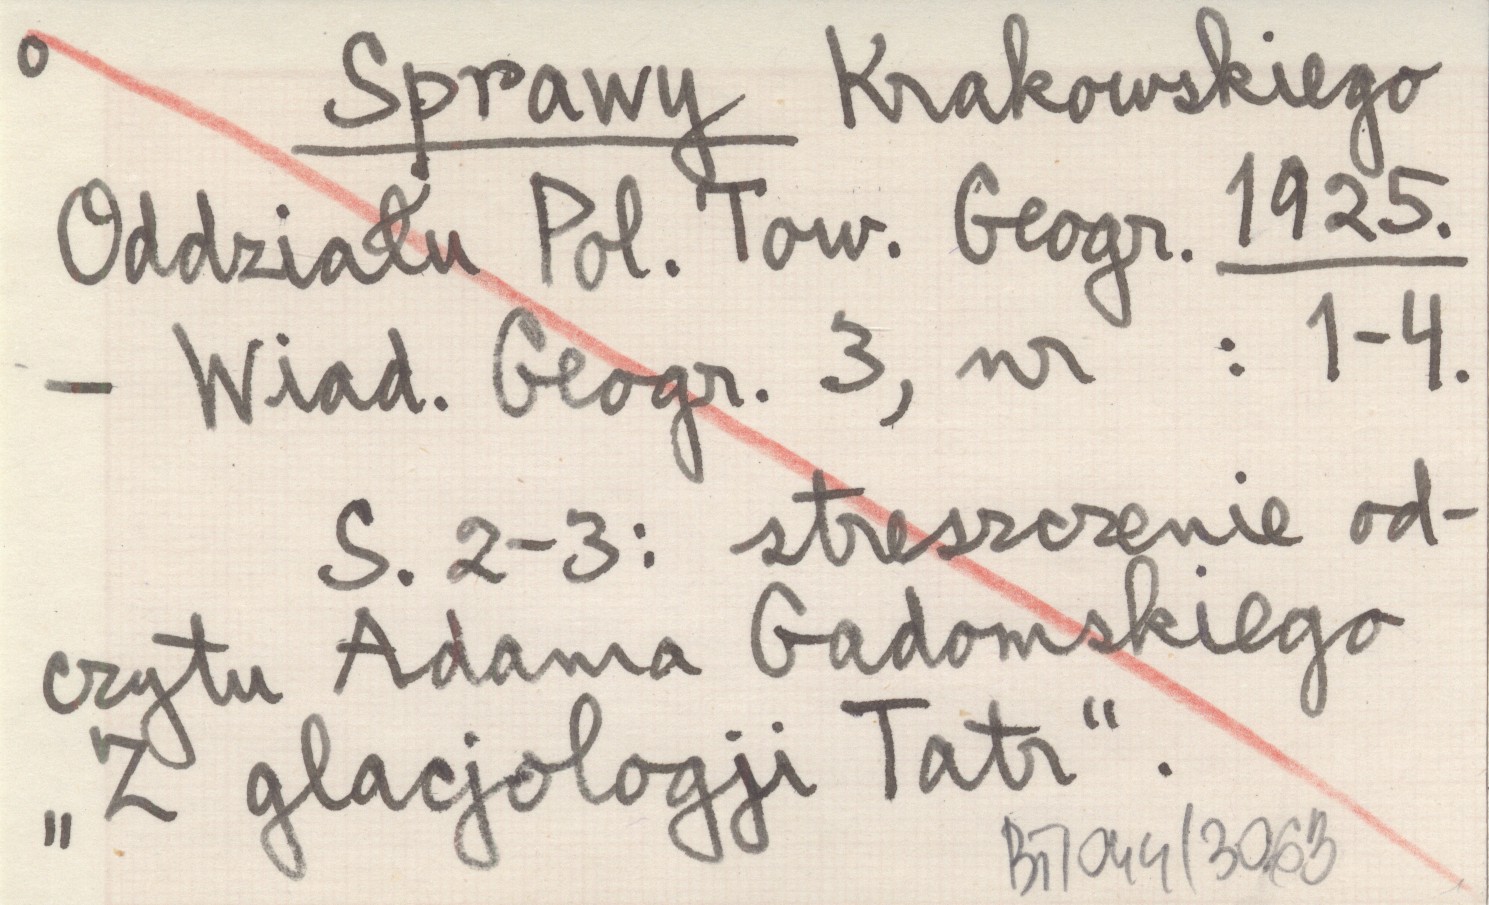 o Sprawy Krakowskiego
Oddziału Pol. Tow. Geogr. 1925.
– Wiad. Geogr. 3, nr : 1-4.
S. 2-3: streszczenie od-
czytu Adama Gadomskiego
„Z glacjologji Tatr“.